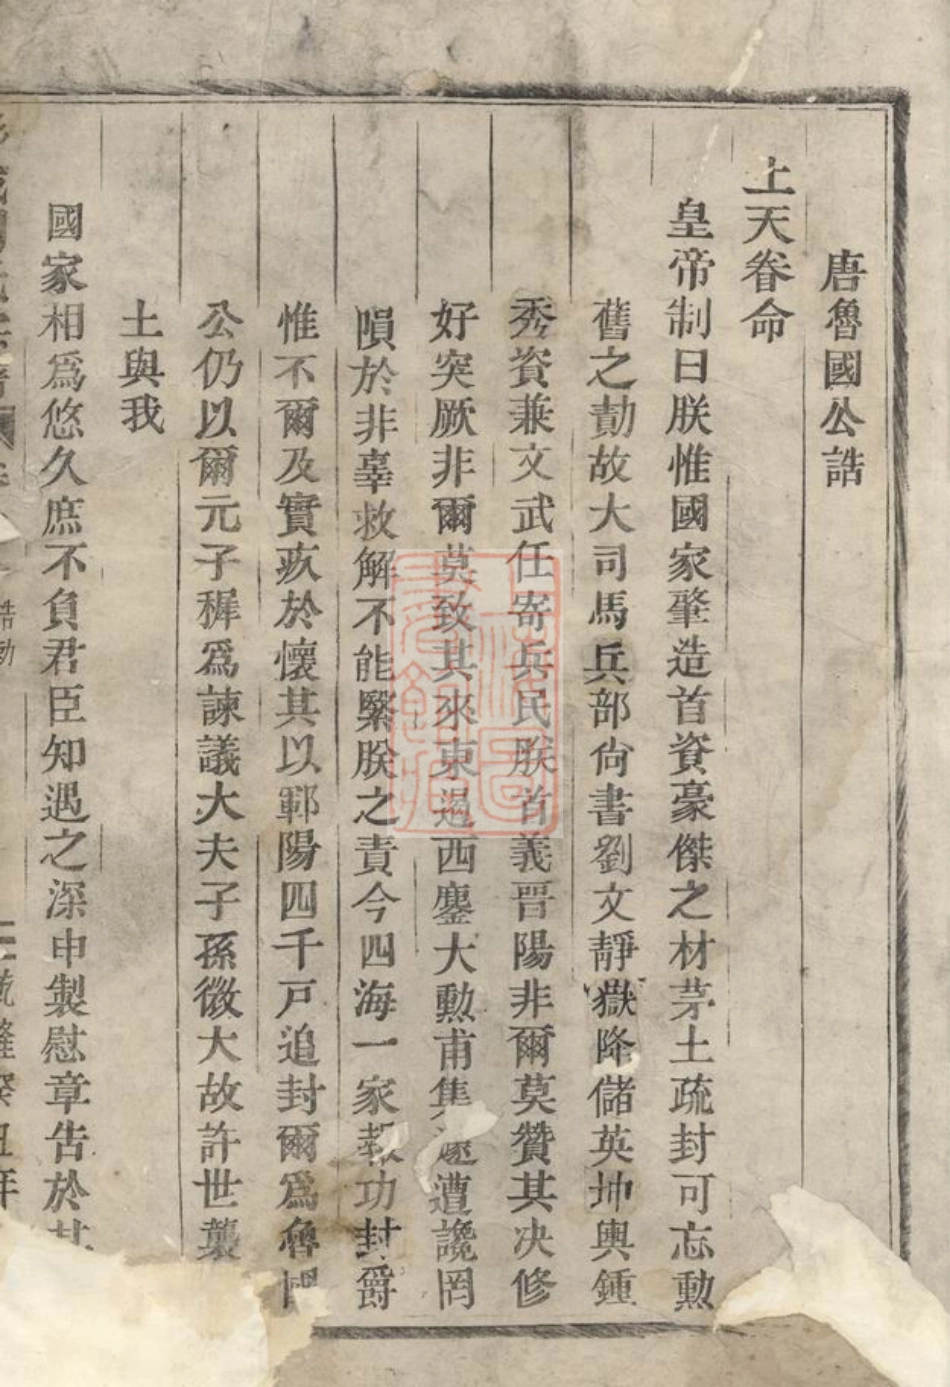 唐魯國公誥
上天眷命
皇帝制曰朕惟國家肇造首資豪傑之材茅土疏封可忘勳
舊之勣故大司馬兵部尙書劉文靜嶽降儲英坤輿鍾
秀資兼文武任寄兵民朕首義晋陽非爾莫贊其决修
好突厥非爾莫致其來東遏西鏖大勳甫集遽遭讒罔
隕於非辜救解不能緊朕之責今四海一家報功封爵
惟不爾及實疚於懷其以鄆陽四千戸追封爾爲魯國
公仍以爾元子穉爲諫議大夫子孫微大故許世襲
土與我
國家相爲悠久庶不負君臣知遇之深申製慰章告於其
誥勅